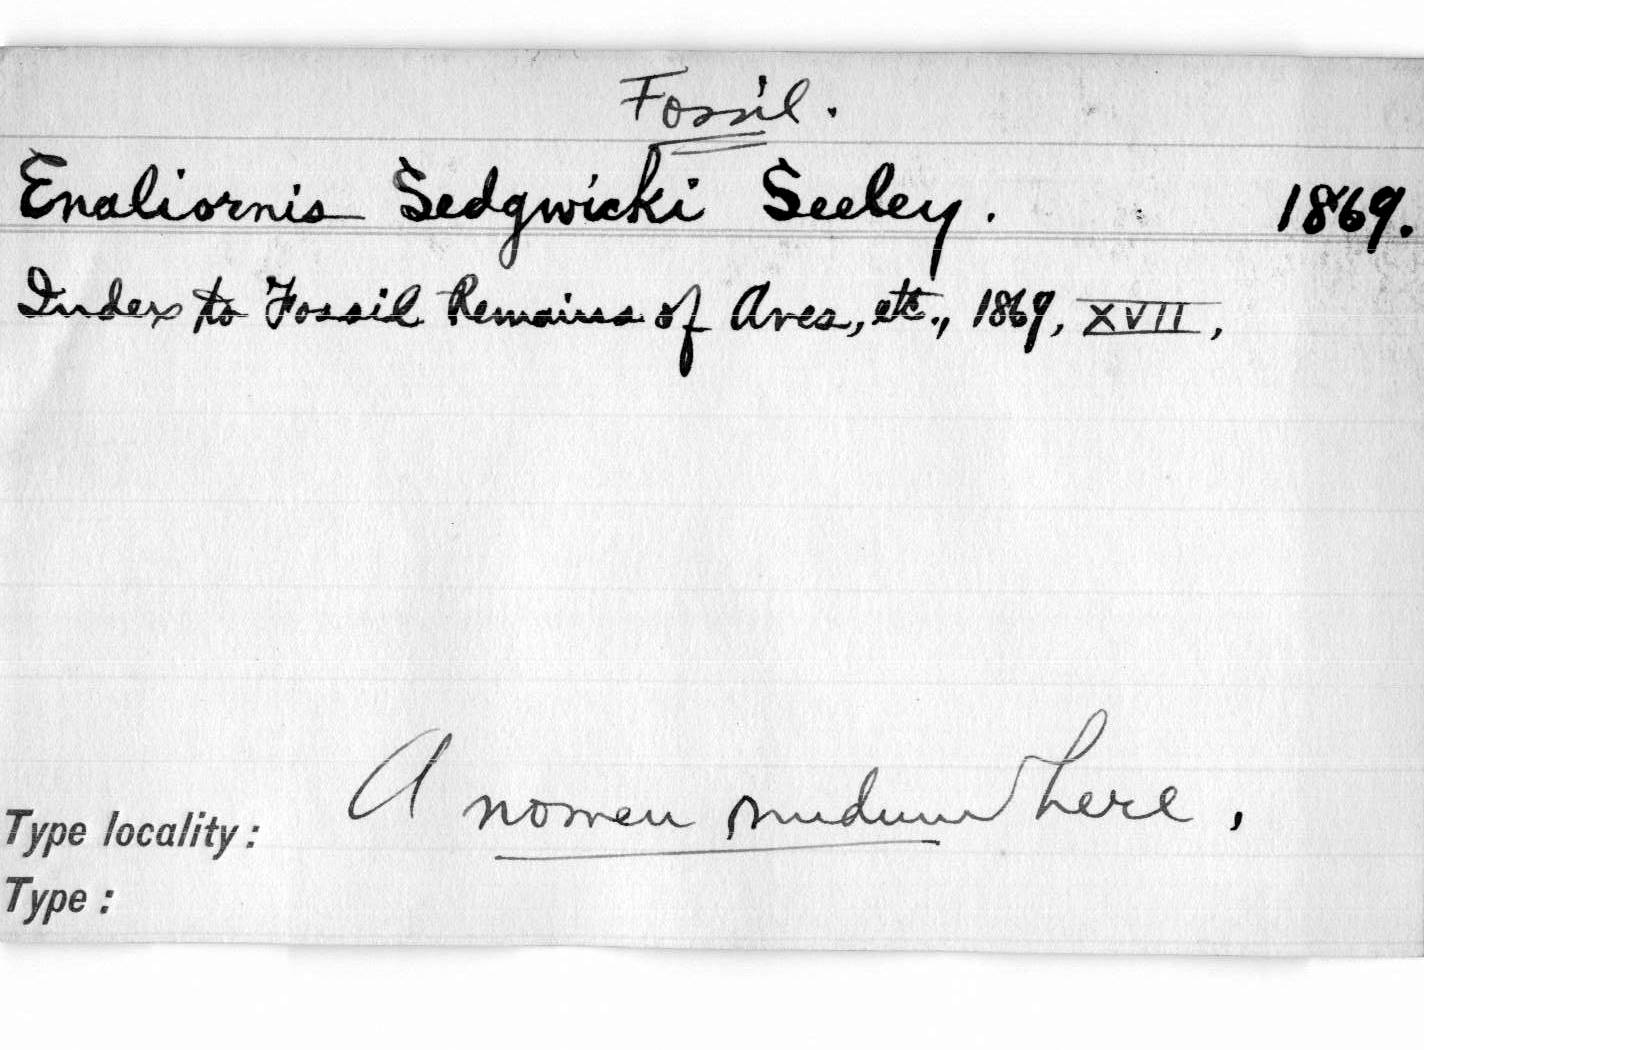 Fossil.
Enaliornis Sedgwicki Seeley. 1869.
Index to Fossil Remains of Aves, etc., 1869, XVII,
A nomen nudum here.
Type locality:
Type: